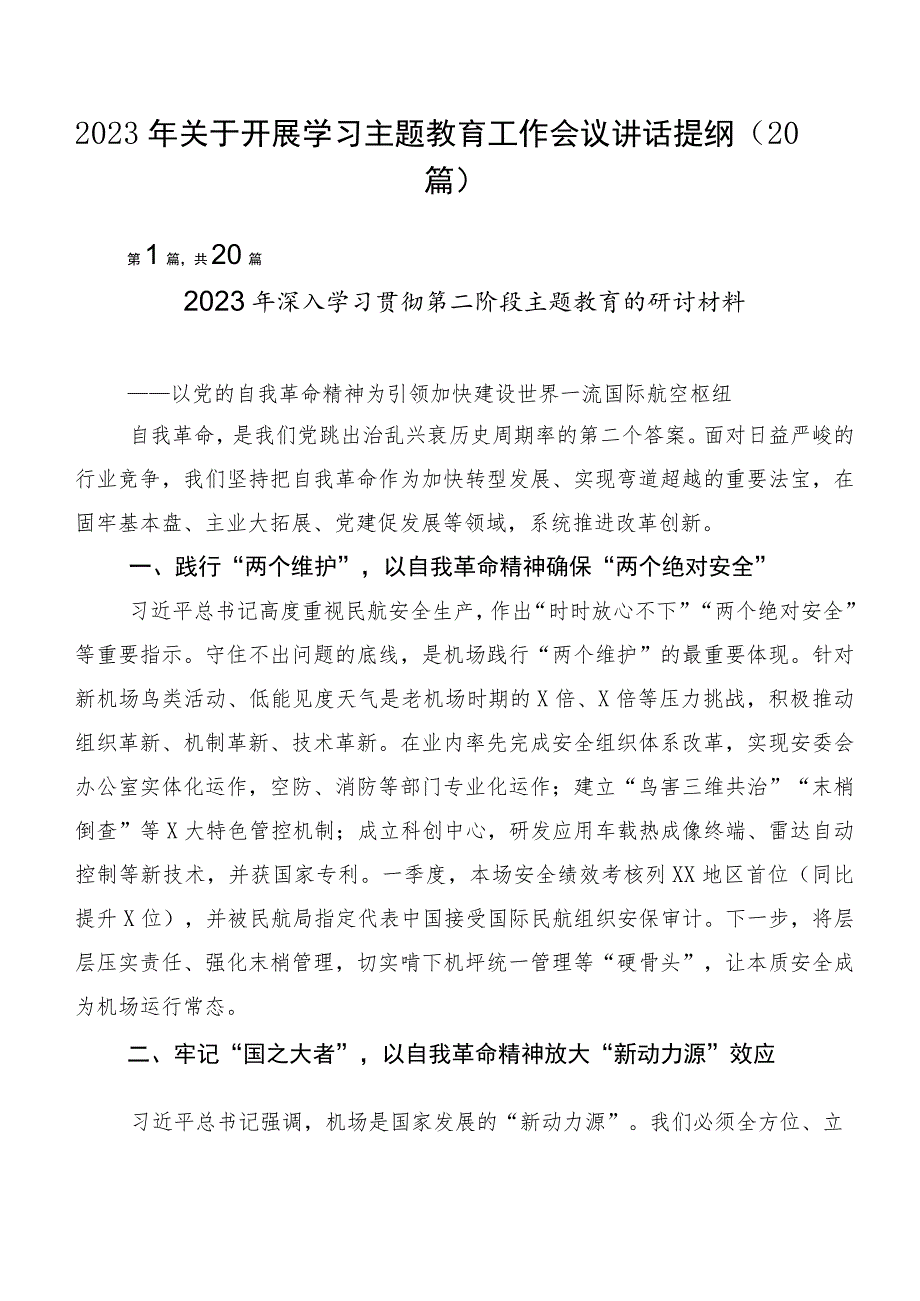 2023 年关于开展学习主题教育工作会议讲话提纲（20
篇）
第 1 篇，共 20 篇
2023 年深入学习贯彻第二阶段主题教育的研讨材料
——以党的自我革命精神为引领加快建设世界一流国际航空枢纽
自我革命，是我们党跳出治乱兴衰历史周期率的第二个答案。面对日益严峻的
行业竞争，我们坚持把自我革命作为加快转型发展、实现弯道超越的重要法宝，在
固牢基本盘、主业大拓展、党建促发展等领域，系统推进改革创新。
一、践行“两个维护”，以自我革命精神确保“两个绝对安全”
习近平总书记高度重视民航安全生产，作出“时时放心不下”“两个绝对安全”
等重要指示。守住不出问题的底线，是机场践行“两个维护”的最重要体现。针对
新机场鸟类活动、低能见度天气是老机场时期的 X 倍、X 倍等压力挑战，积极推动
组织革新、机制革新、技术革新。在业内率先完成安全组织体系改革，实现安委会
办公室实体化运作，空防、消防等部门专业化运作；建立“鸟害三维共治”“末梢
倒查”等 X 大特色管控机制；成立科创中心，研发应用车载热成像终端、雷达自动
控制等新技术，并获国家专利。一季度，本场安全绩效考核列 XX 地区首位（同比
提升 X 位），并被民航局指定代表中国接受国际民航组织安保审计。下一步，将层
层压实责任、强化末梢管理，切实啃下机坪统一管理等“硬骨头”，让本质安全成
为机场运行常态。
二、牢记“国之大者”，以自我革命精神放大“新动力源”效应
习近平总书记强调，机场是国家发展的“新动力源”。我们必须全方位、立